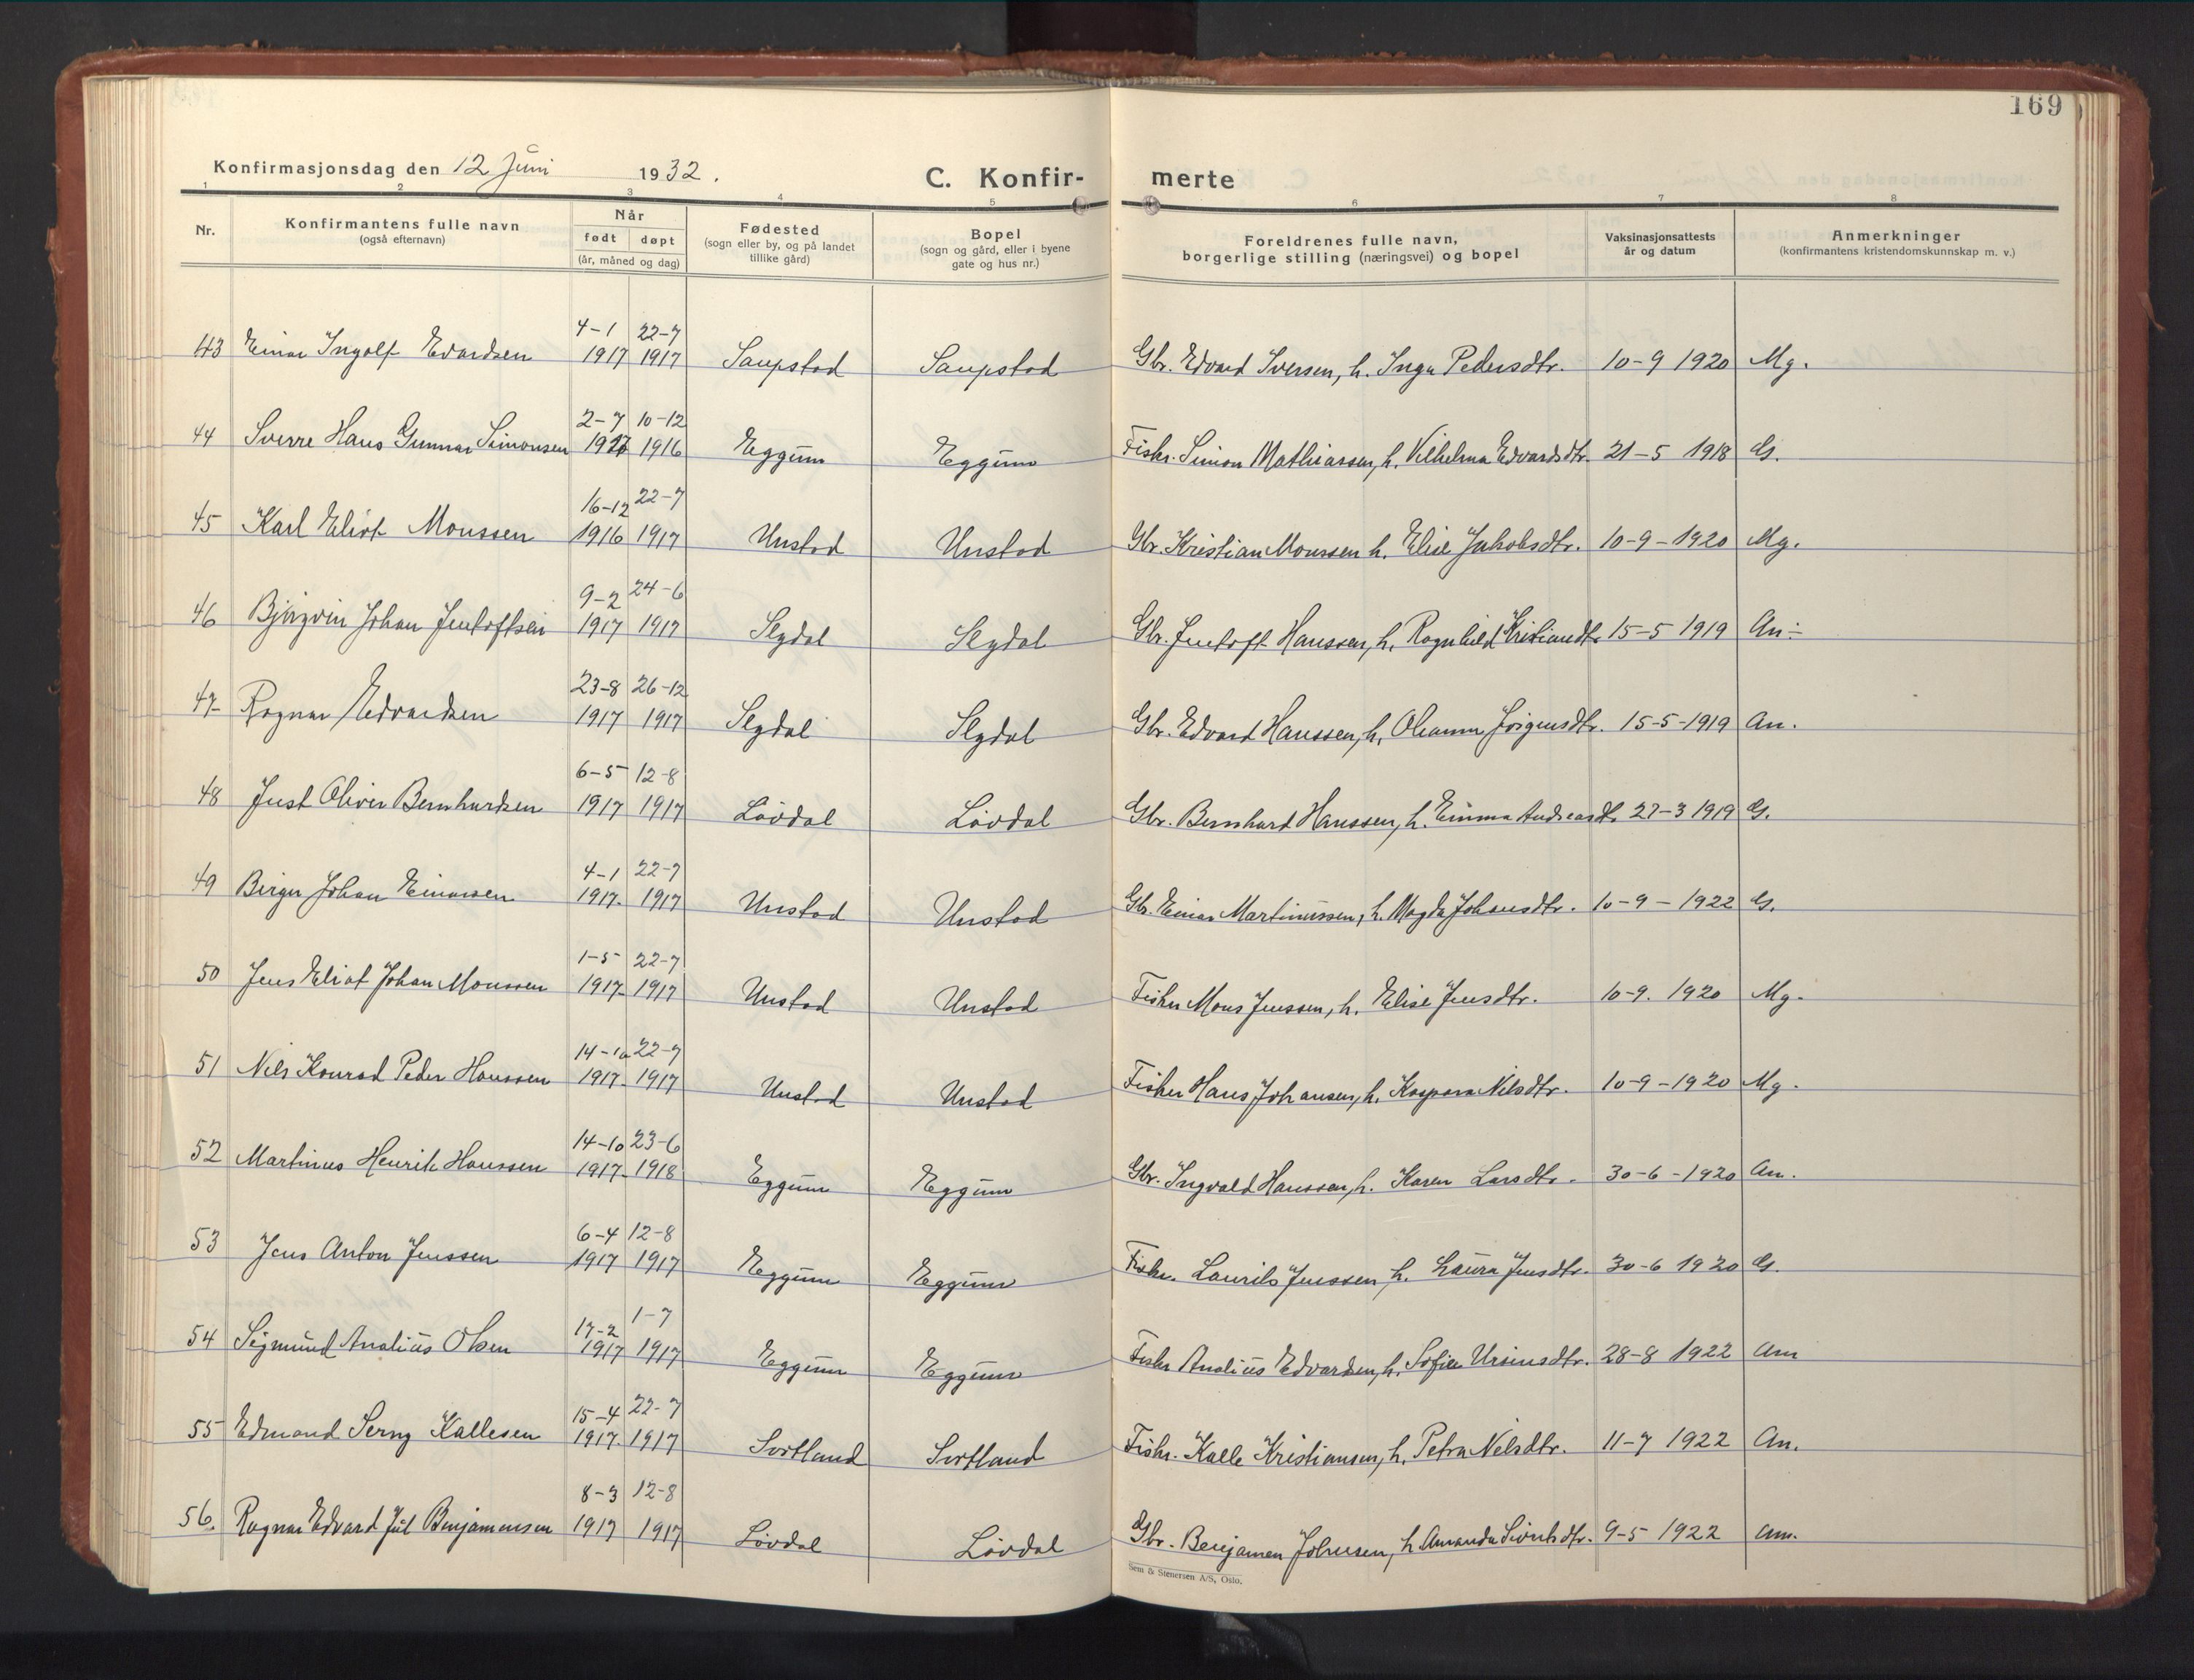 169
Konfirmasjonsdag den 12 Juni 1932.
C. Konfir- merte
1 2 3 4 5 6 7 8
Nr.
Konfirmantens fulle navn
(også efternavn)
Når
født døpt
(år, måned og dag)
Fødested
(sogn eller by, og på landet
tillike gård)
Bopel
(sogn og gård, eller i byene
gate og hus nr.)
Foreldrenes fulle navn,
borgerlige stilling (næringsvei) og bopel
Vaksinasjonsattests
år og datum
Anmerkninger
(konfirmantens kristendomskunnskap m. v.)
4-1 22-7
43 Einar Ingolf Evardsen 1917 1917 Saupstad Saupstad Gbr. Edvard Iversen, h. Inga Pedersdtr. 10-9 1920 Mg.
2-7 10-12
44 Sverre Hans Gunnar Simonsen 1916 Eggum Eggum Fiskr. Simon Mathiassen, h. Vilhelma Edvardsdtr. 21-5 1918 G.
16-12 22-7
45 Karl Eliot Monssen 1916 1917 Unstad Unstad Gbr. Kristian Monssen h. Elise Jakobsdtr. 10-9-1920 Mg.
9-2 24-6
46 Bjørgvin Johan Jentoftsen 1917 1917 Slydal Slydal Gbr. Jentoft Hanssen, h. Ragnhild Kristiandtr 15-5 1919 An-
23-8 26-12
47 Ragnar Edvardsen 1917 1917 Slydal Slydal Gbr. Edvard Hanssen, h. Oleanna Jörgensdtr. 15-5-1919 An.
6-5 12-8
48 Just Oliver Bernhardsen 1917 1917 Lövdal Lövdal Gbr. Bernhard Hanssen, h. Emma Andreasdtr 27-3 1919 G.
4-1 22-7
49 Birger Johan Einarsen 1917. 1917 Unstad Unstad Gbr. Einar Martinussen, h. Magda Johansdtr. 10-9-1922 G.
1-5 22-7
50 Jens Eliot Johan Monssen 1917- 1917 Unstad Unstad Fisker Mons Jenssen, h. Elise Jensdtr. 10-9. 1920 Mg.
14-10 22-7
51 Nils Konrad Peder Hanssen 1917- 1917 Unstad Unstad Fisker Hans Johansen, h. Kaspara Nilsdtr. 10-9-1920 Mg.
14-10 23-6
52 Martinus Henrik Hanssen 1917- 1918 Eggum Eggum Gbr. Ingvald Hanssen, h. Karen Larsdtr. 30-6-1920 An.
6-4 12-8
53 Jens Anton Jenssen 1917 1917 Eggum Eggum Fiskr. Laurits Jenssen h. Laura Jensdtr. 30-6 1920 G.
17-2 1-7
54 Sigmund Analius Olsen 1917 1917 Eggum Eggum Fiskr Analius Edvardsen, h. Sofie Ursinsdtr. 28-8 1922 Am
15-4 22-7
55 Edmand Serny Kallesen 1917. 1917 Sortland Sortland Fiskr. Kalle Kristiansen, h. Petra Nilsdtr. 11-7 1922 An.
8-3 12-8
56. Ragnar Edvard Jul Benjamensen 1917 1917 Lövdal Lövdal Gbr. Benjamen Johnsen, h Amanda Sivertsdtr. 9-5 1922 Am.
Sem & Stenersen A/S, Oslo.